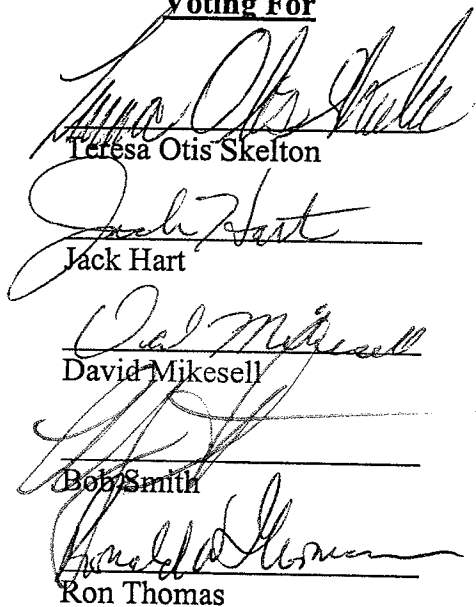 Voting For
Teresa Otis Skelton
Teresa Otis Skelton
Jack Hart
Jack Hart
David Mikesell
David Mikesell
Bob Smith
Ronald D Thomas
Ron Thomas